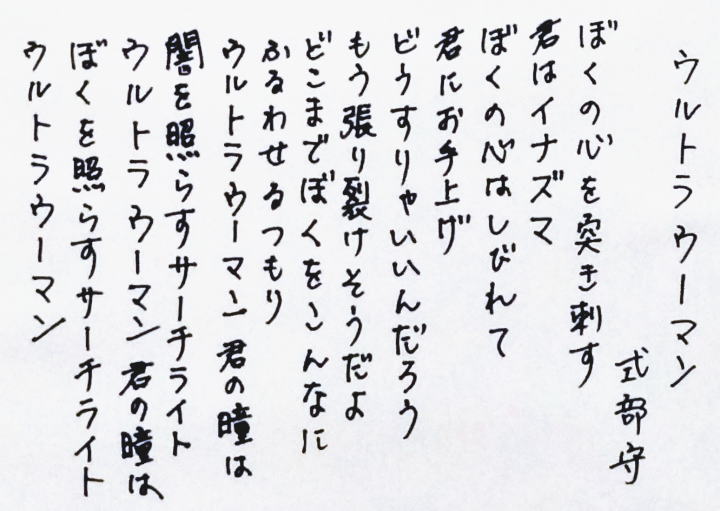 ウルトラウーマン
式部守
ぼくの心を突き刺す
君はイナズマ
ぼくの心はしびれて
君にお手上げ
どうすりゃいいんだろう
もう張り裂けそうだよ
どこまでぼくをこんなに
ふるわせるつもり
ウルトラウーマン 君の瞳は
闇を照らすサーチライト
ウルトラウーマン 君の瞳は
ぼくを照らすサーチライト
ウルトラウーマン